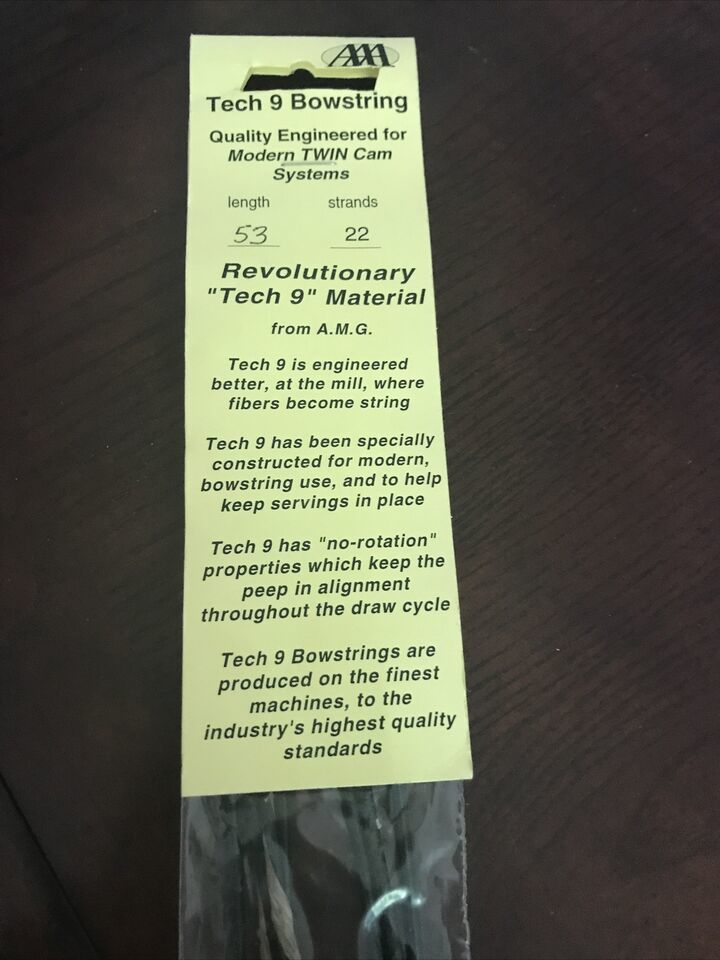 AAA
Tech 9 Bowstring
Quality Engineered for
Modern TWIN Cam
Systems
length strands
53 22
Revolutionary
"Tech 9" Material
from A.M.G.
Tech 9 is engineered
better, at the mill, where
fibers become string
Tech 9 has been specially
constructed for modern,
bowstring use, and to help
keep servings in place
Tech 9 has "no-rotation"
properties which keep the
peep in alignment
throughout the draw cycle
Tech 9 Bowstrings are
produced on the finest
machines, to the
industry's highest quality
standards